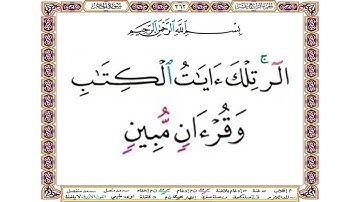 ٢٦٢
بِسْمِ ٱللَّهِ ٱلرَّحْمَٰنِ ٱلرَّحِيمِ
الٓرۚ تِلْكَ ءَايَٰتُ ٱلْكِتَٰبِ
وَقُرْءَانٍ مُّبِينٍ